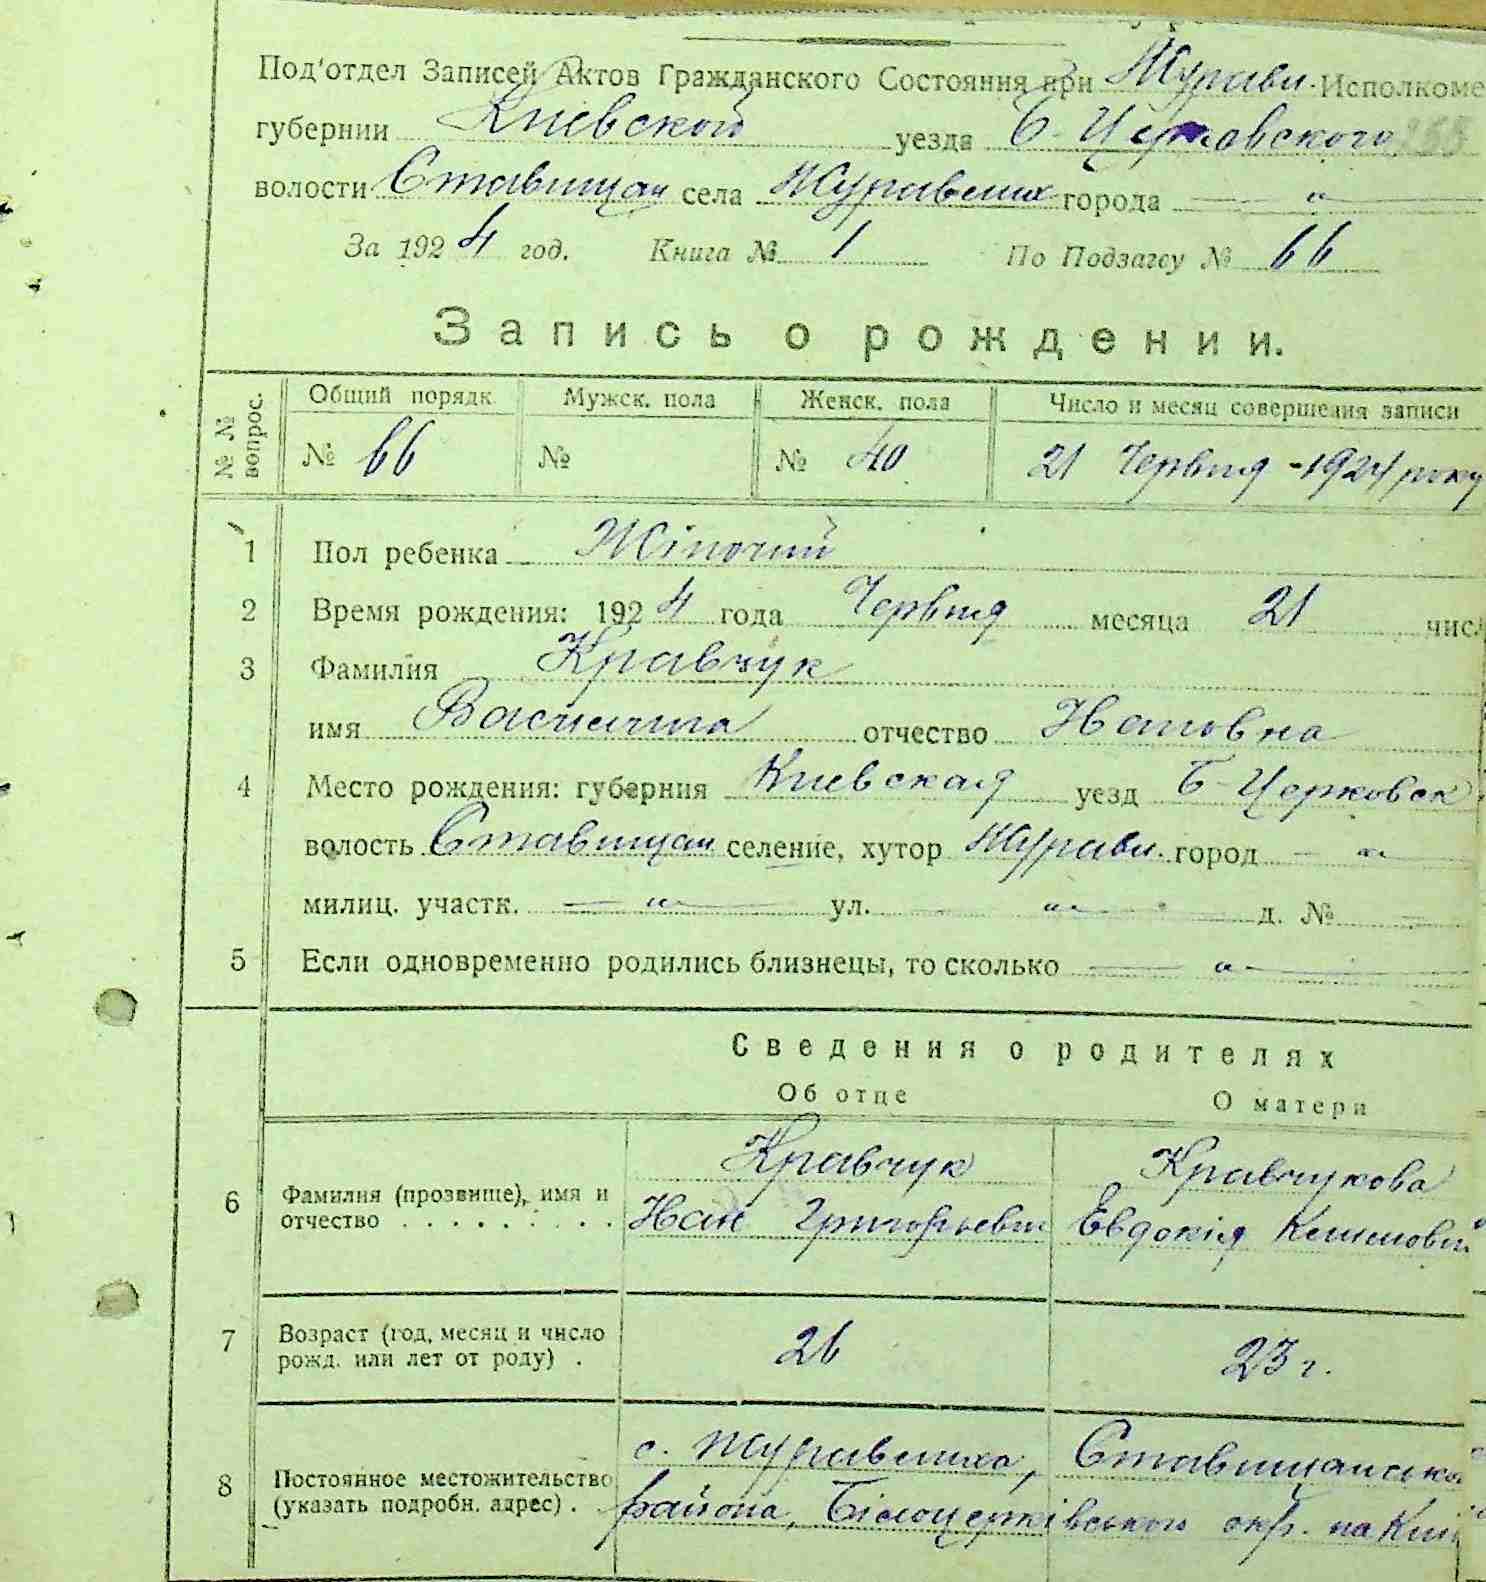 Под'отдел Записей Актов Гражданского Состояния при Журавл. Исполкоме
губернии Киевской уезда Б-Церковского
волости Ставищан села Журавлиха города — " —
За 1924 год. Книга № 1 По Подзагсу № 66
Запись о рождении.
№№ вопрос. Общий порядк. Мужск. пола Женск. пола Число и месяц совершения записи
№ 66 № № 40 21 Червня -1924 року
1 Пол ребенка Жіночий
2 Время рождения: 1924 года Червня месяца 21 числ
3 Фамилия Кравчук
имя отчество
4 Место рождения: губерния Киевская уезд Б-Церковск
волость Ставищан селение, хутор Журавл. город — " —
милиц. участк. — " — ул. — " — д. № —
5 Если одновременно родились близнецы, то сколько — " —
Сведения о родителях
Об отце О матери
6 Фамилия (прозвище), имя и отчество . . . . . . . . . Кравчук Кравчукова
Григорьевич Евдокія
7 Возраст (год, месяц и число рожд. или лет от роду) . 26 23 г.
8 Постоянное местожительство (указать подробн. адрес) . с. Журавлиха, Ставищансько
района, Білоцерківського окр. на Киї